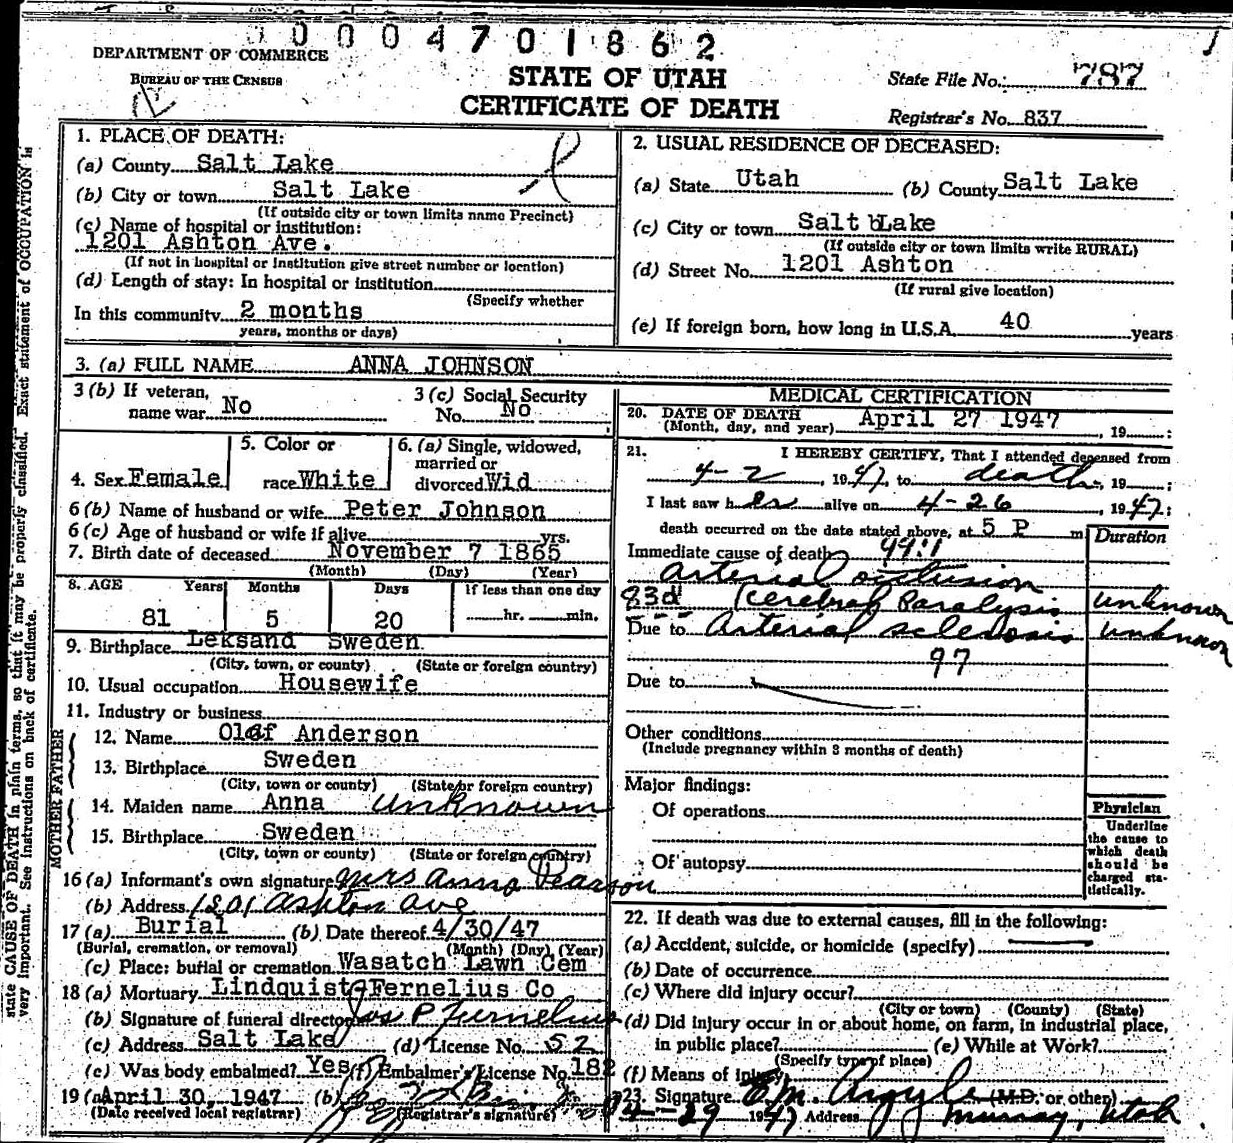 00004701862
DEPARTMENT OF COMMERCE
BUREAU OF THE CENSUS
STATE OF UTAH
CERTIFICATE OF DEATH
State File No. 787
Registrar's No. 837
1. PLACE OF DEATH:
(a) County Salt Lake
(b) City or town Salt Lake
(If outside city or town limits name Precinct)
(c) Name of hospital or institution:
1201 Ashton Ave.
(If not in hospital or institution give street number or location)
(d) Length of stay: In hospital or institution
(Specify whether
In this community 2 months
years, months or days)
2. USUAL RESIDENCE OF DECEASED:
(a) State Utah (b) County Salt Lake
(c) City or town Salt Lake
(If outside city or town limits write RURAL)
(d) Street No. 1201 Ashton
(If rural give location)
(e) If foreign born, how long in U.S.A. 40 years
3. (a) FULL NAME ANNA JOHNSON
3 (b) If veteran, name war No
3 (c) Social Security No. No
4. Sex Female
5. Color or race White
6. (a) Single, widowed, married or divorced Wid
6 (b) Name of husband or wife Peter Johnson
6 (c) Age of husband or wife if alive yrs.
7. Birth date of deceased November 7 1865
(Month) (Day) (Year)
8. AGE Years Months Days If less than one day
81 5 20 hr. min.
9. Birthplace Leksand Sweden
(City, town, or county) (State or foreign country)
10. Usual occupation Housewife
11. Industry or business
FATHER
12. Name Olof Anderson
13. Birthplace Sweden
(City, town or county) (State or foreign country)
MOTHER
14. Maiden name Anna unknown
15. Birthplace Sweden
(City, town or county) (State or foreign country)
16 (a) Informant's own signature Mrs Anna Pearson
(b) Address 1201 Ashton Ave
17 (a) Burial (b) Date thereof 4/30/47
(Burial, cremation, or removal) (Month) (Day) (Year)
(c) Place: burial or cremation Wasatch Lawn Cem
18 (a) Mortuary Lindquist-Fernelius Co
(b) Signature of funeral director Jos P Fernelius
(c) Address Salt Lake (d) License No. 52
(e) Was body embalmed? Yes (f) Embalmer's License No. 182
19 (a) April 30, 1947 (b)
(Date received local registrar) (Registrar's signature)
MEDICAL CERTIFICATION
20. DATE OF DEATH
(Month, day, and year) April 27 1947, 19 :
21. I HEREBY CERTIFY, That I attended deceased from
4-2, 1947, to death, 19 ;
I last saw her alive on 4-26 1947;
death occurred on the date stated above, at 5 P m
Duration
Immediate cause of death 99:1
arterial occlusion
83d (Cerebral Paralysis unknown
Due to Arterial sclerosis unknown
97
Due to
Other conditions
(Include pregnancy within 3 months of death)
Major findings:
Of operations
Of autopsy
Physician
Underline
the cause to
which death
should be
charged sta-
tistically.
22. If death was due to external causes, fill in the following:
(a) Accident, suicide, or homicide (specify)
(b) Date of occurrence
(c) Where did injury occur?
(City or town) (County) (State)
(d) Did injury occur in or about home, on farm, in industrial place,
in public place? (e) While at Work?
(Specify type of place)
(f) Means of injury
23. Signature E.M. Argyle (M.D. or other)
4-29 1947 Address Murray, Utah
state CAUSE OF DEATH in plain terms, so that it may be properly classified. Exact statement of OCCUPATION is
very important. See instructions on back of certificate.